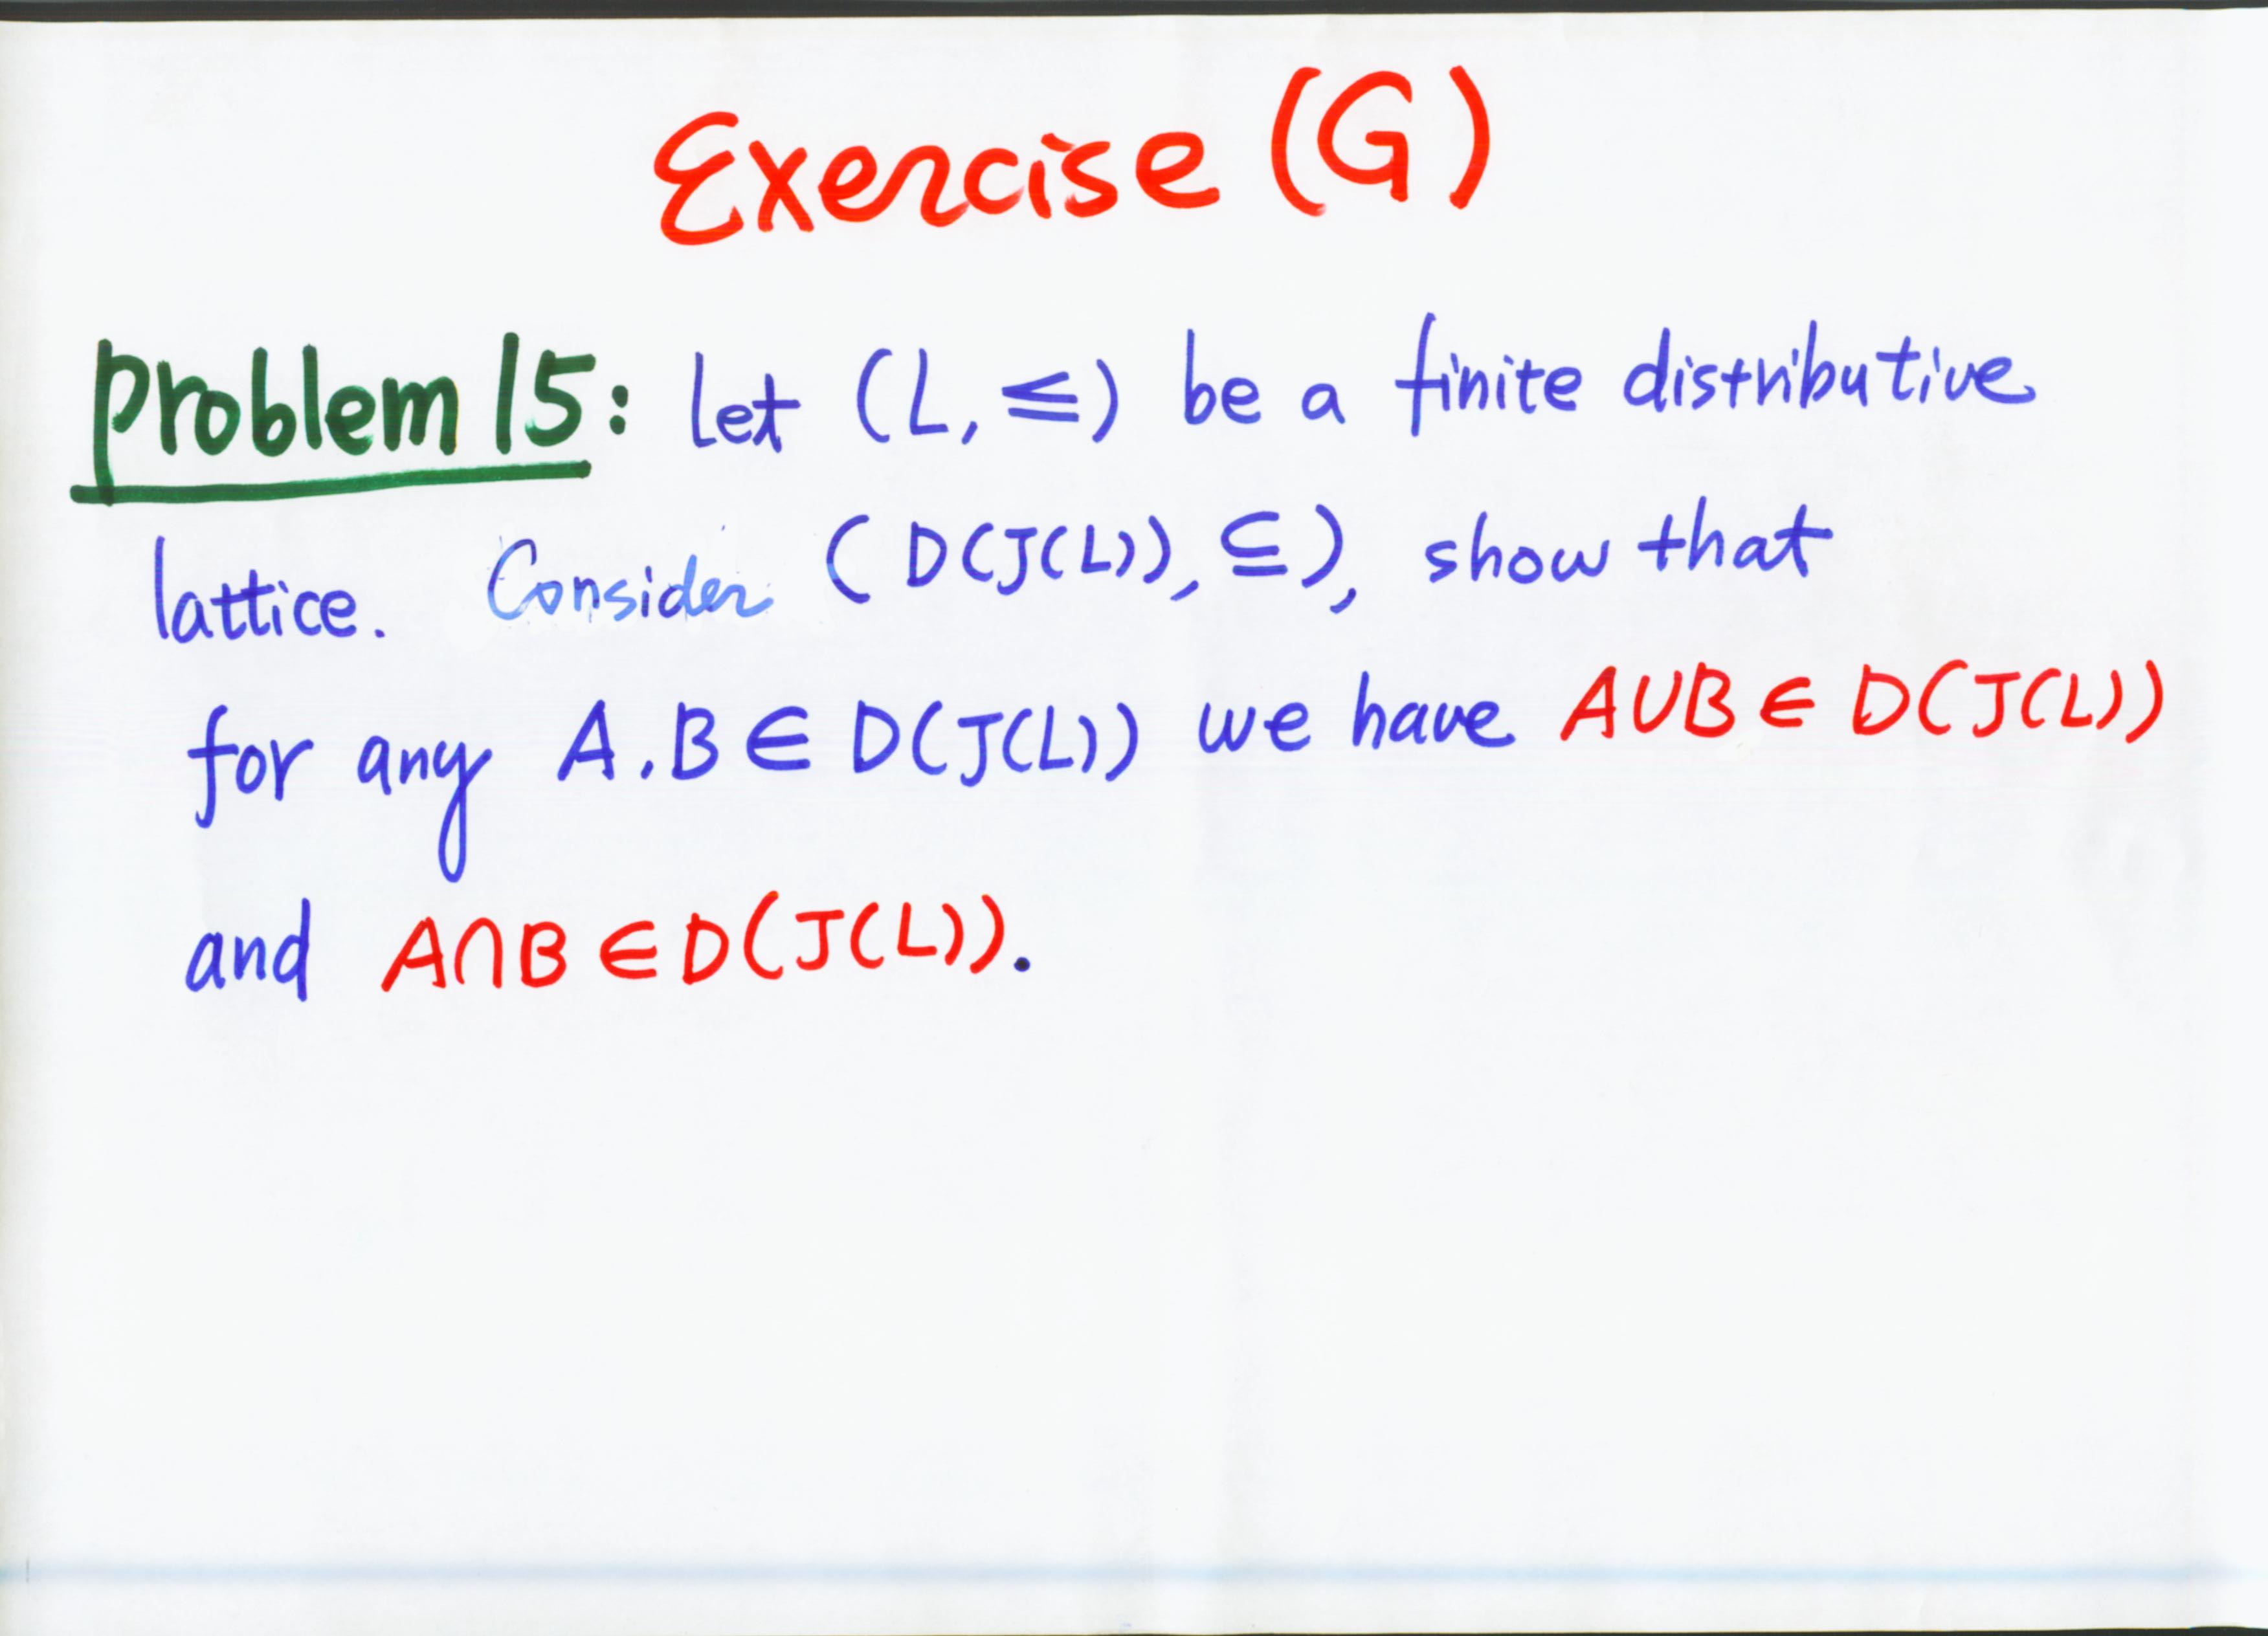 Exercise (G)
Problem 15: Let (L, ≤) be a finite distributive
lattice. Consider (D(J(L)), ⊆), show that
for any A, B ∈ D(J(L)) we have A∪B ∈ D(J(L))
and A∩B ∈ D(J(L)).